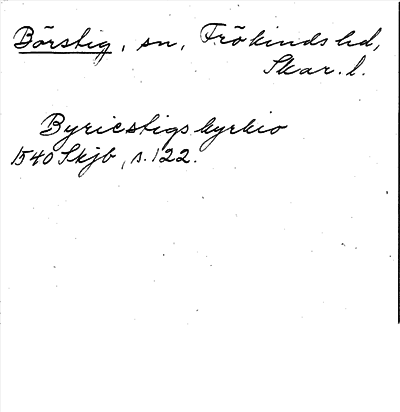 Börstig, sn, Frökinds hd,
Skar. l.
Byricstigs kyrkio
1540 Skjb, s. 122.